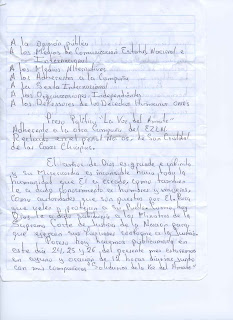 A la Opinión pública
A los Medios de Comunicación Estatal, Nacional e
Internacional
A los Medios Alternativos
A los Adherentes a la Campaña
A la Sexta Internacional
A las Organizaciones Independientes
A los Defensores de los Derechos Humanos ONGS
Preso Político "La Voz del Amate"
Adherente a la otra campaña del EZLN
Recluido en el penal No. 5 de San Cristóbal
de las Casas Chiapas.
El amor de Dios es grande e infinito
y su Misericordia es inagotable hacia toda la
humanidad que El lo creado como también
le a dado conocimiento a hombres y mujeres
como autoridades que son puestos por El Para
que velen y protejan a su Pueblo
y a los Ministros de la
Suprema Corte de Justicia de la Nación para
que
hoy hacemos públicamente en
este día 24, 25 y 26 del presente mes estaremos
en ayuno y oración de 12 horas diarias junto
con mis compañeros Solidarios de la Voz del Amate"